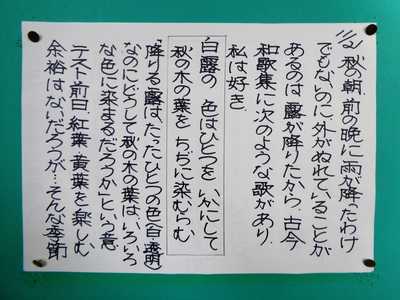 11/2 秋の朝、前の晩に雨が降ったわけ
でもないのに、外がぬれていることが
あるのは露が降りたから、古今
和歌集に次のような歌があり、
私は好き。
白露の 色はひとつを いかにして
秋の木の葉を ちぢに染むらむ
「降りる露は、たったひとつの色(白・透明)
なのにどうして秋の木の葉は、いろいろ
な色に染まるだろうか」という意
テスト前日、紅葉、黄葉を楽しむ
余裕はないだろうが…そんな季節